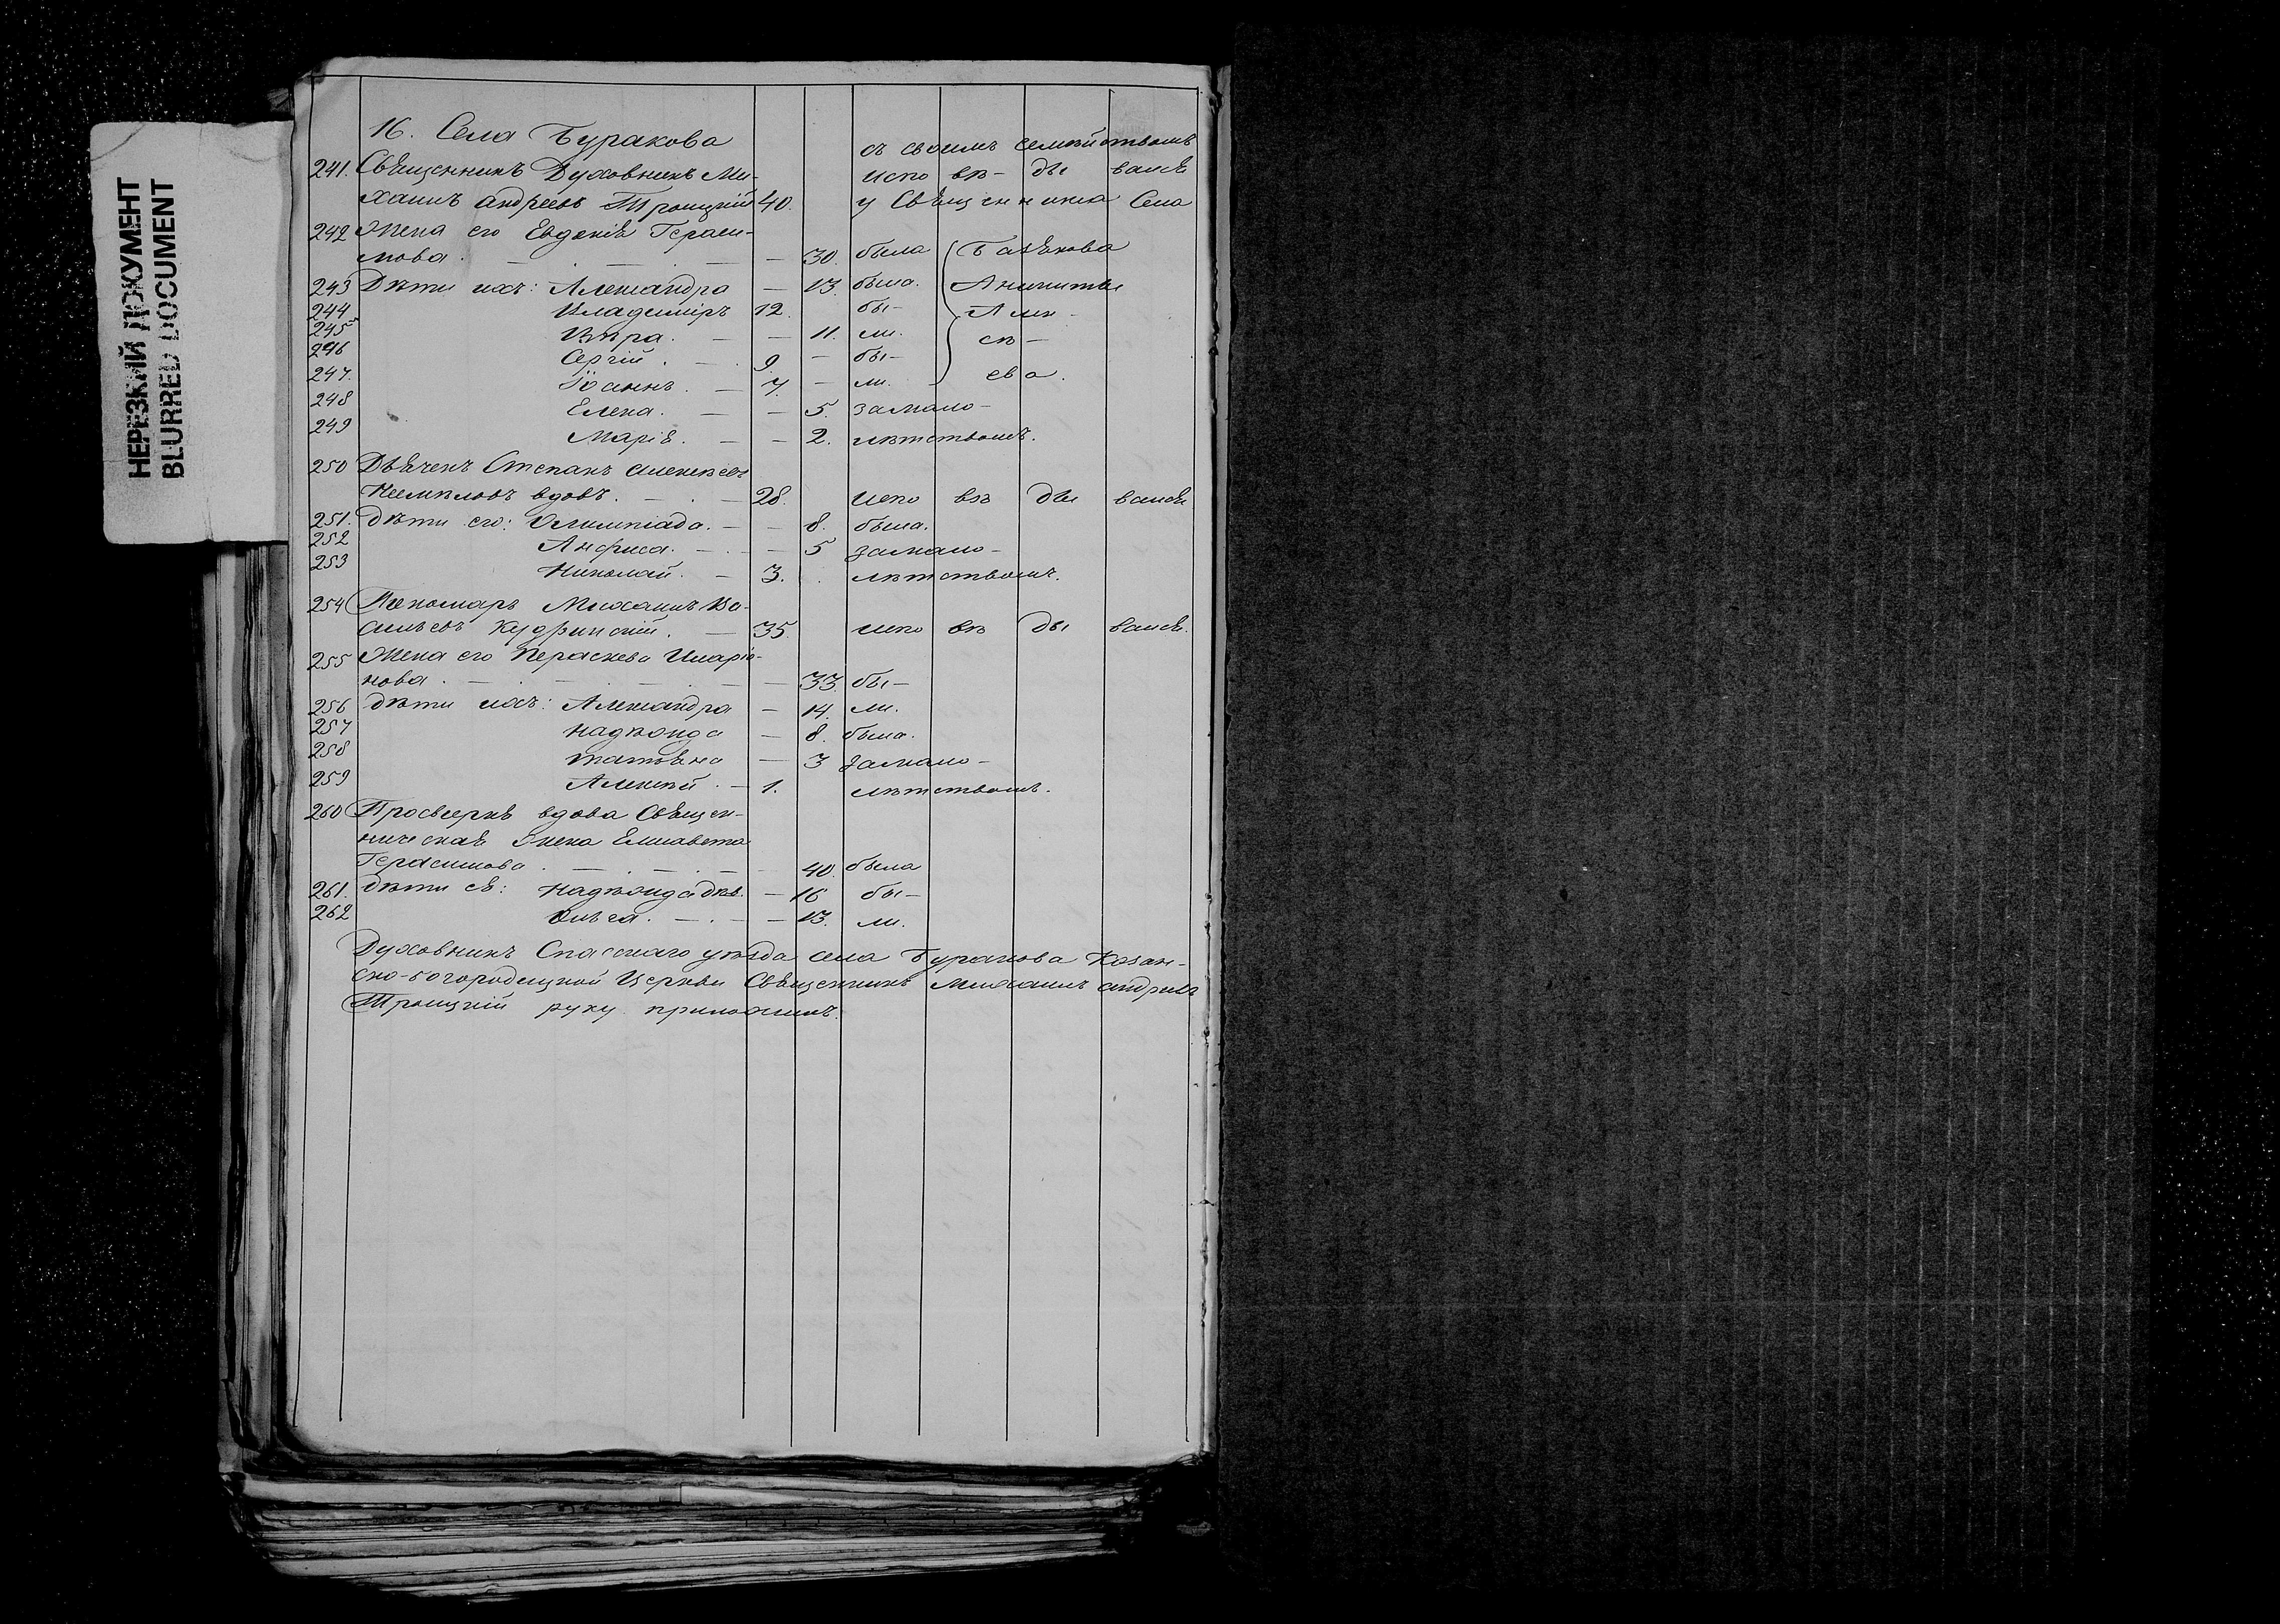 НЕРЕЗКИЙ ДОКУМЕНТ
BLURRED DOCUMENT
16. Села Буракова
съ своимъ семействомъ
241. Свѧщенникъ Духовникъ Ми- испо вѣ- ды валсѧ
хаилъ Андреевъ Троицкій 40. у Свѧщенника Села
242 Жена его Евдокіѧ Гераси-
мова. — 30. была
243 Дѣти ихъ: Александра — 13. была. Аникиты
244 Владиміръ 12. бы- Алек-
245 Вѣра. — — 11. ли. сѣ-
246 Сергій. — 9. — бы- ева.
247. Іоаннъ. — 7. — ли.
248 Елена. — — 5. замало-
249 Маріѧ. — — 2. лѣтствомъ.
250 Дьѧчекъ Степанъ Алексѣевъ
вдовъ. — 28. испо вѣ ды валсѧ
251. дѣти его: Олимпіада. — — 8. была.
252 Анфиса. — — 5 замало-
253 Николай. — 3. лѣтствомъ.
254 Пономарь Михаилъ Ва-
сильевъ Кудринскій. — 35. испо вѣ ды валсѧ.
255 Жена его Пераскева Иларіо-
нова. — 33. бы-
256 дѣти ихъ: Александра — 14. ли.
257 Надѣжда — 8. была.
258 Татьѧна — 3 замало-
259 Алексѣй. — 1. лѣтствомъ.
260 Просвернѧ вдова Свѧщен-
ническаѧ Жена Елисавета
Герасимова — 40. была
261. дѣти еѧ: Надѣжда дѣв. — 16 бы-
262 Ольга. — — 13. ли.
Духовникъ Спасскаго уѣзда села Буракова Казан-
ско-богородицкой Церкви Свѧщенникъ Михаилъ Андреевъ
Троицкій руку приложилъ.